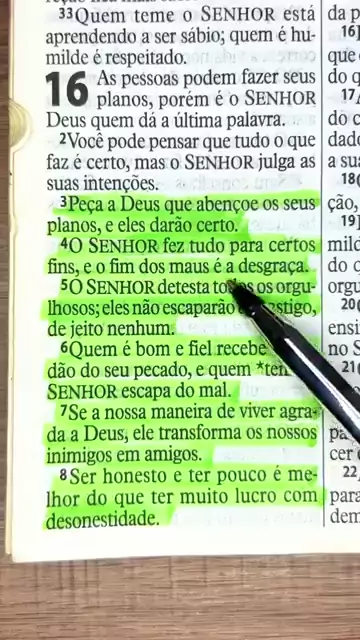 33Quem teme o SENHOR está
aprendendo a ser sábio; quem é hu-
milde é respeitado.
16 As pessoas podem fazer seus
planos, porém é o SENHOR
Deus quem dá a última palavra.
2Você pode pensar que tudo o que
faz é certo, mas o SENHOR julga as
suas intenções.
3Peça a Deus que abençoe os seus
planos, e eles darão certo.
4O SENHOR fez tudo para certos
fins, e o fim dos maus é a desgraça.
5O SENHOR detesta os orgu-
lhosos; eles não escaparão
de jeito nenhum.
6Quem é bom e fiel recebe
dão do seu pecado, e quem
SENHOR escapa do mal.
7Se a nossa maneira de viver agra-
da a Deus, ele transforma os nossos
inimigos em amigos.
8Ser honesto e ter pouco é me-
lhor do que ter muito lucro com
desonestidade.
da p
16
que
do q
17
do c
dad
a su
18
ção,
19
mild
do d
orgu
20
ensi
no S
21
cer
22
para
dem